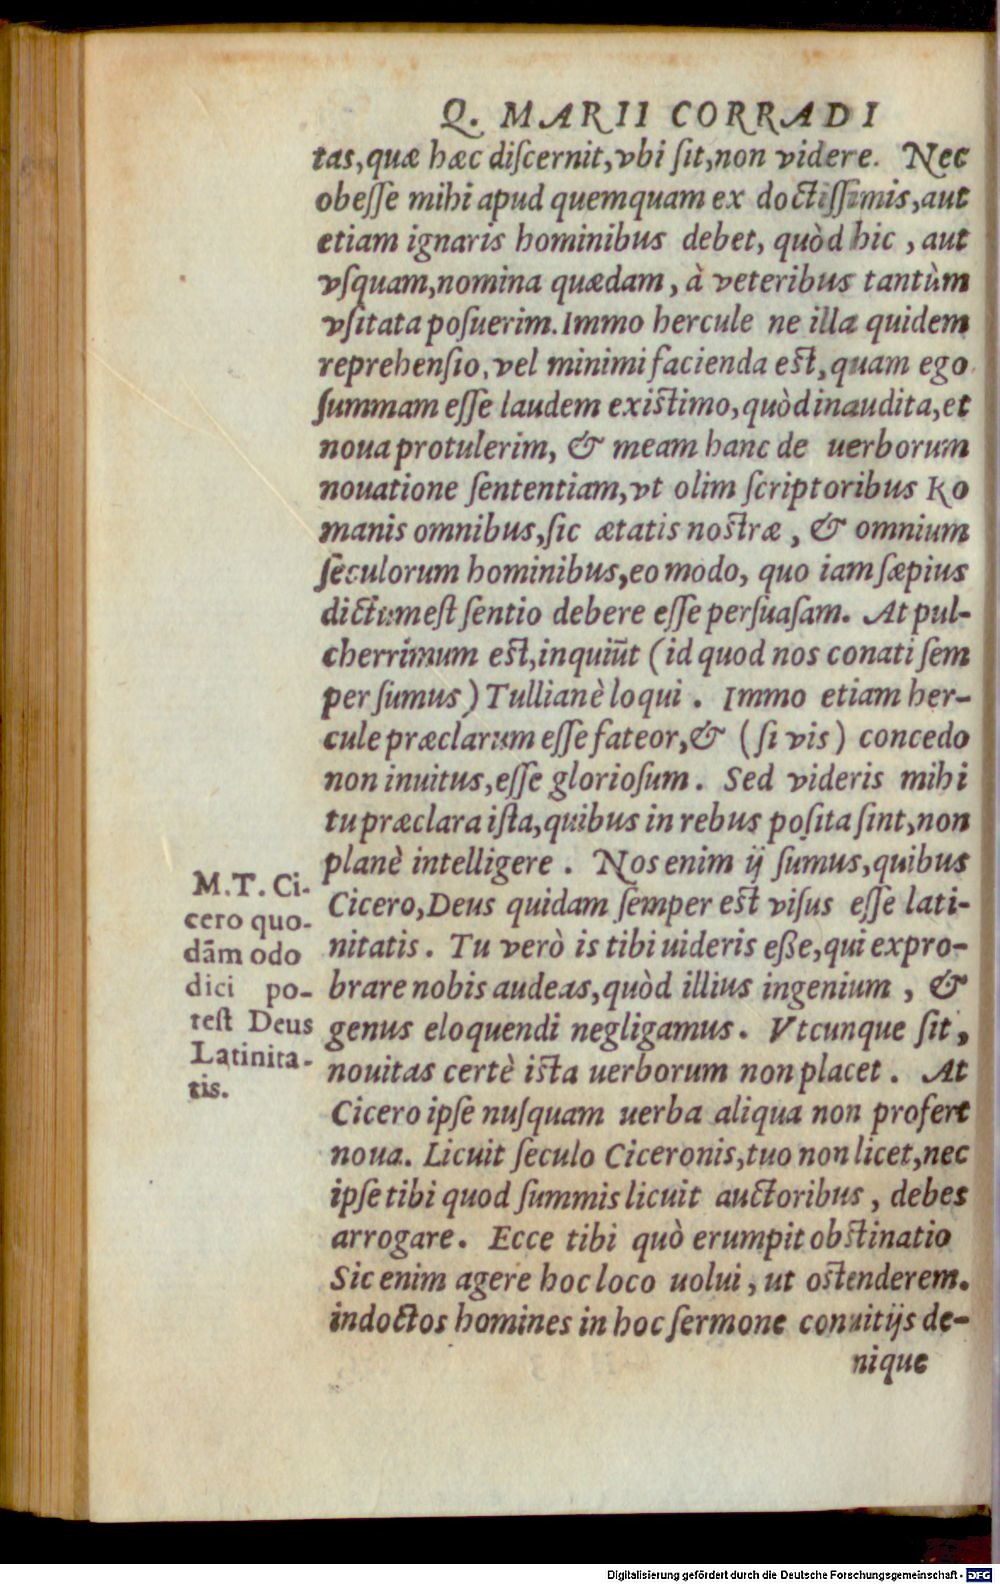 Q. MARII CORRADI
tas, quæ hæc discernit, vbi sit, non videre. Nec
obesse mihi apud quemquam ex doctissimis, aut
etiam ignaris hominibus debet, quòd hic, aut
vsquam, nomina quædam, à veteribus tantùm
vsitata posuerim. Immo hercule ne illa quidem
reprehensio, vel minimi facienda est, quam ego
summam esse laudem existimo, quòd inaudita, et
noua protulerim, & meam hanc de uerborum
nouatione sententiam, vt olim scriptoribus Ro
manis omnibus, sic ætatis nostræ, & omnium
seculorum hominibus, eo modo, quo iam sæpius
dictum est sentio debere esse persuasam. At pul-
cherrimum est, inquiūt (id quod nos conati sem
per sumus) Tullianè loqui. Immo etiam her-
cule præclarum esse fateor, & (si vis) concedo
non inuitus, esse gloriosum. Sed videris mihi
tu præclara ista, quibus in rebus posita sint, non
planè intelligere. Nos enim ij sumus, quibus
Cicero, Deus quidam semper est visus esse lati-
nitatis. Tu verò is tibi uideris eße, qui expro-
brare nobis audeas, quòd illius ingenium, &
genus eloquendi negligamus. Vtcunque sit,
nouitas certè ista uerborum non placet. At
Cicero ipse nusquam uerba aliqua non profert
noua. Licuit seculo Ciceronis, tuo non licet, nec
ipse tibi quod summis licuit auctoribus, debes
arrogare. Ecce tibi quò erumpit obstinatio
Sic enim agere hoc loco uolui, ut ostenderem.
indoctos homines in hoc sermone conuitijs de-
nique
M. T. Ci-
cero quo-
dām odo
dici po-
test Deus
Latinita-
tis.
Digitalisierung gefördert durch die Deutsche Forschungsgemeinschaft - DFG